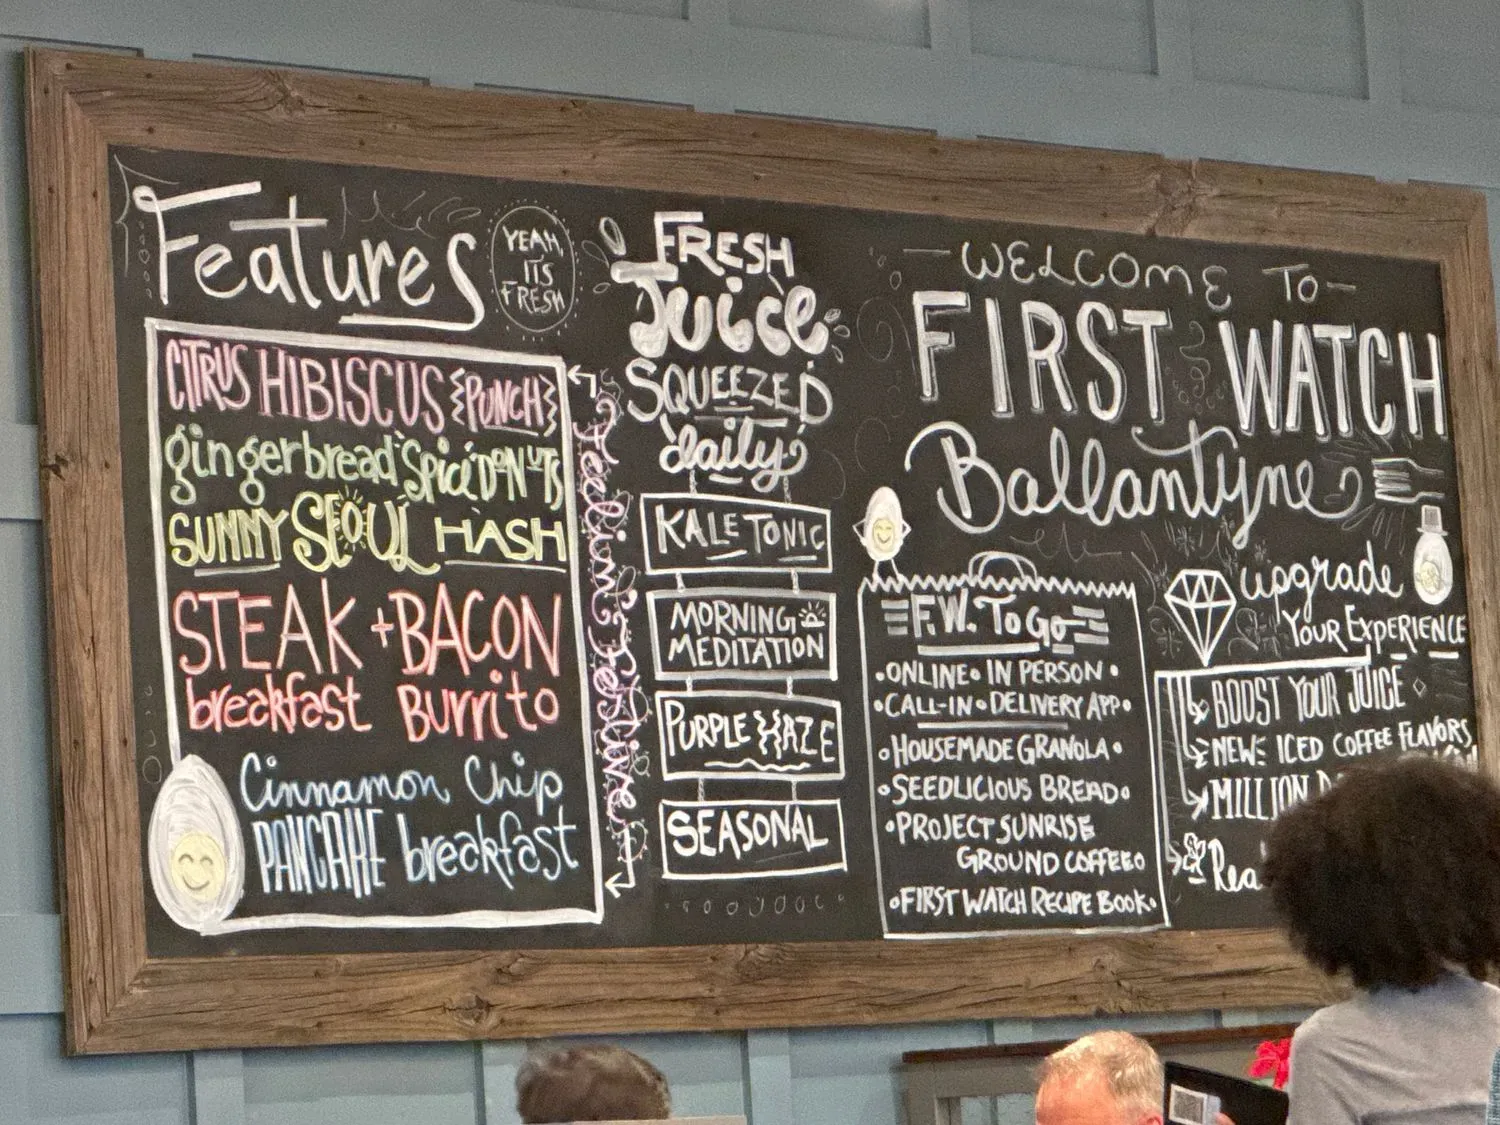 Features
YEAH,
ITS
FRESH
CITRUS HIBISCUS PUNCH
gingerbread Spice DONUTS
SUNNY SEOUL HASH
STEAK + BACON
breakfast Burrito
Cinnamon Chip
PANCAKE breakfast
Feeling Festive
FRESH
Juice
SQUEEZED
daily
KALE TONIC
MORNING
MEDITATION
PURPLE HAZE
SEASONAL
- WELCOME TO -
FIRST WATCH
Ballantyne
F.W. TO GO
• ONLINE • IN PERSON •
• CALL-IN • DELIVERY APP •
• HOUSEMADE GRANOLA •
• SEEDLICIOUS BREAD •
• PROJECT SUNRISE
GROUND COFFEE •
• FIRST WATCH RECIPE BOOK •
upgrade
YOUR EXPERIENCE
BOOST YOUR JUICE
NEW ICED COFFEE FLAVORS
MILLION